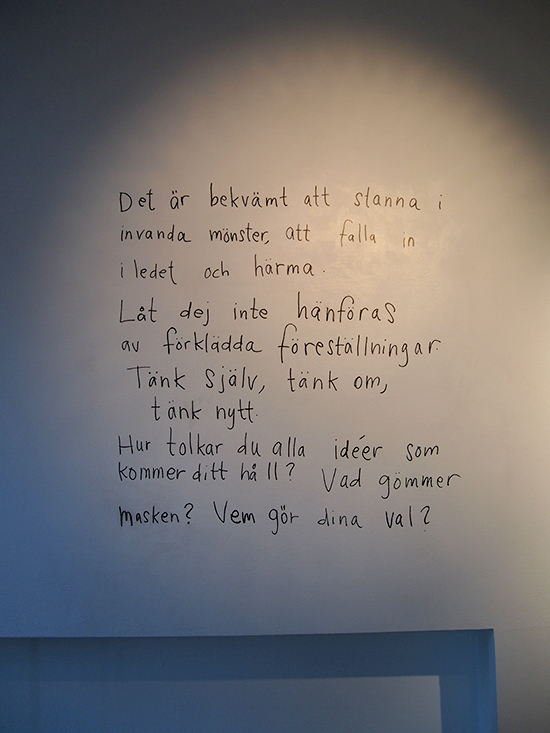 Det är bekvämt att stanna i
invanda mönster, att falla in
i ledet och härma.
Låt dej inte hänföras
av förklädda föreställningar.
Tänk själv, tänk om,
tänk nytt.
Hur tolkar du alla idéer som
kommer ditt håll? Vad gömmer
masken? Vem gör dina val?